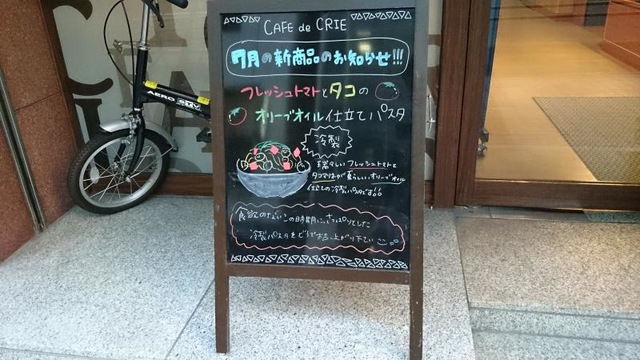 CAFE de CRIE
7月の新商品のお知らせ!!!
フレッシュトマトとタコの
オリーブオイル仕立てパスタ
冷製
瑞々しいフレッシュトマトと
オリーブオイル
仕立ての冷製パスタです!!
食欲のないこの時期に、さっぱりとした
冷製パスタをどうぞお召し上がり下さい
AERO